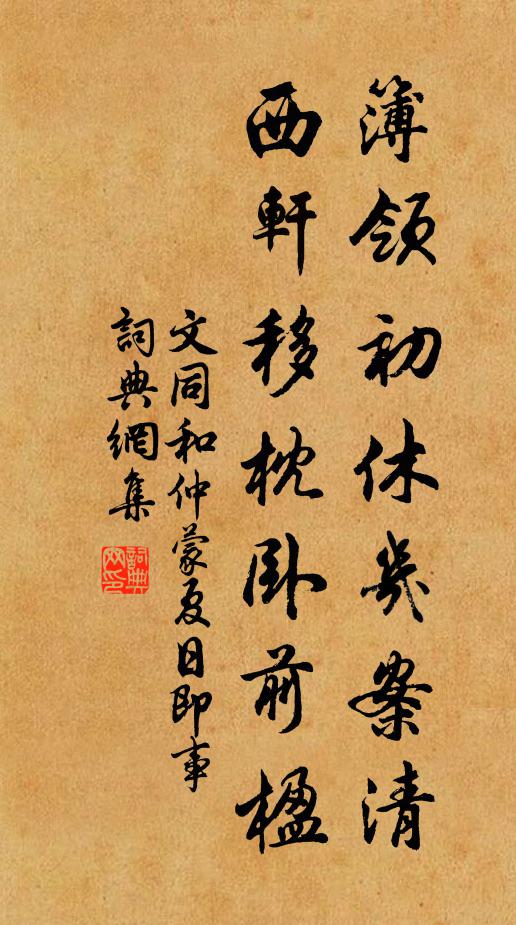 簿領初休幾案清
西軒移枕卧前楹
文同和仲蒙夏日即事
詞典網集
詞典網印